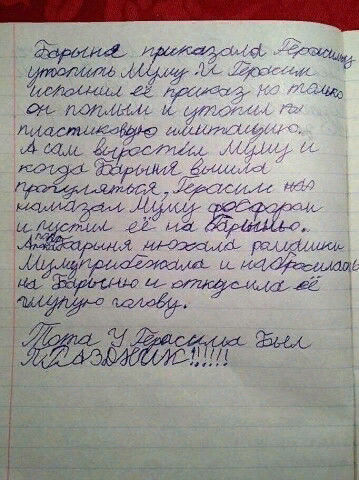 Барыня приказала Герасиму
утопить Муму. И Герасим
исполнил её приказ но только
он поплыл и утопил
пластиковую имитацию.
А сам выростел Муму и
когда Барыня вышла
прогуляться, Герасим
намазал Муму фосфором
и пустил её на Барыню.
А пока Барыня нюхала ромашки
Муму прибежала и набросилась
на Барыню и откусила её
глупую голову.
Тота У Герасима был
ПРАЗДНИК!!!!!!